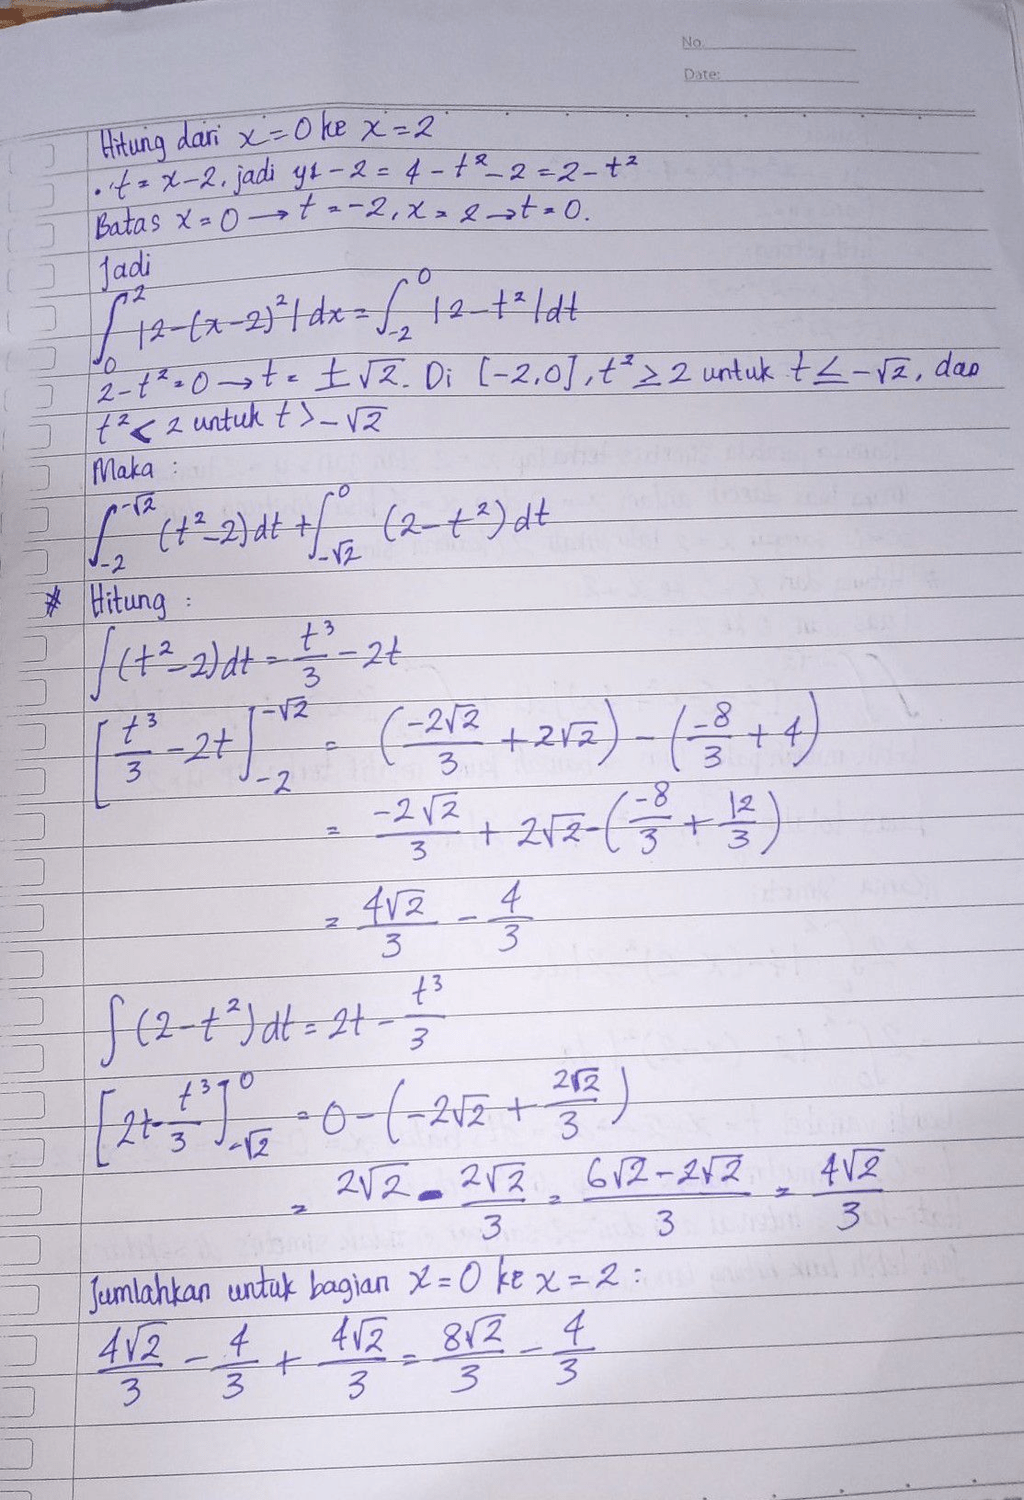 No.
Date:
Hitung dari x=0 ke x=2
• t = x-2, jadi y1-2 = 4-t²-2 = 2-t²
Batas x=0 → t=-2, x=2 → t=0.
Jadi
∫₀² |2-(x-2)²| dx = ∫₋₂⁰ |2-t²| dt
2-t²=0 → t= ±√2. Di [-2,0], t² ≥ 2 untuk t ≤ -√2, dan
t² < 2 untuk t > -√2
Maka :
∫₋₂^(-√2) (t²-2) dt + ∫_(-√2)^0 (2-t²) dt
* Hitung :
∫(t²-2) dt = t³/3 - 2t
[t³/3 - 2t]₋₂^(-√2) = (-2√2/3 + 2√2) - (-8/3 + 4)
= -2√2/3 + 2√2 - (-8/3 + 12/3)
= 4√2/3 - 4/3
∫(2-t²) dt = 2t - t³/3
[2t - t³/3]_(-√2)^0 = 0 - (-2√2 + 2√2/3)
= 2√2 - 2√2/3 = (6√2-2√2)/3 = 4√2/3
Jumlahkan untuk bagian x=0 ke x=2 :
4√2/3 - 4/3 + 4√2/3 = 8√2/3 - 4/3